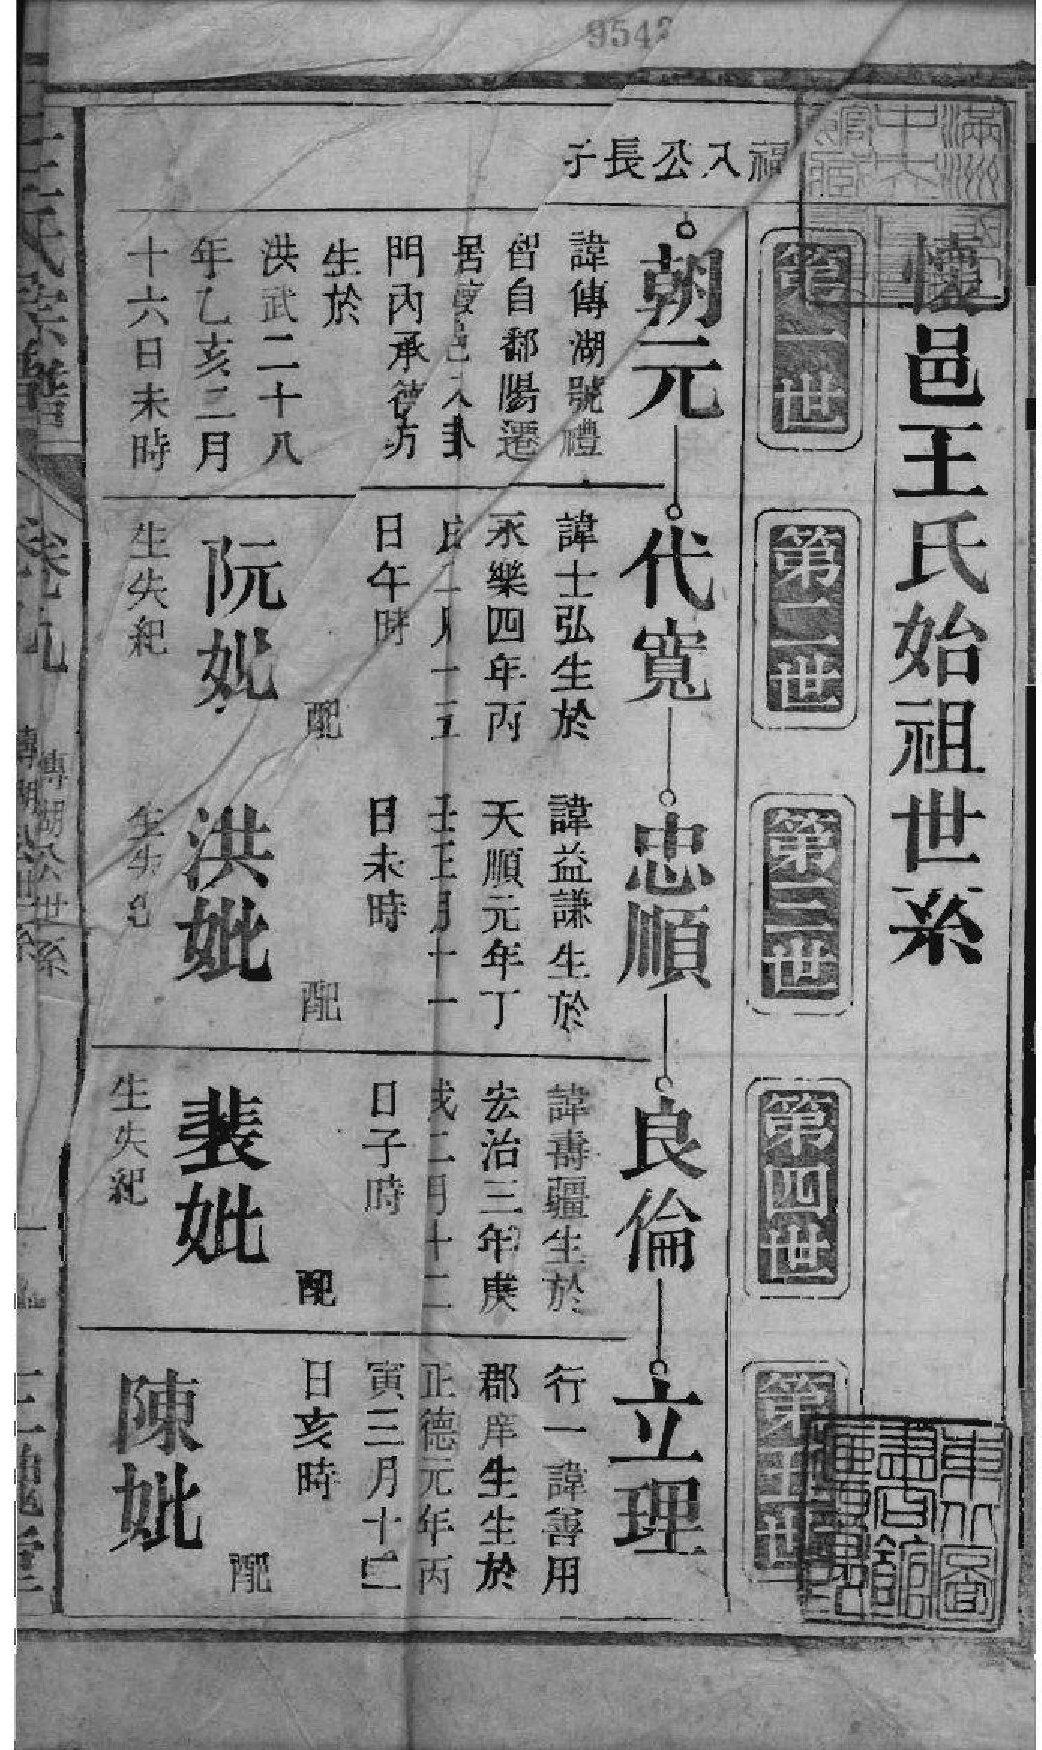 懷邑王氏始祖世系
第一世
第二世
第三世
第四世
第五世
福入公長子
朝元
諱傳湖號禮
智自鄱陽遷
居 邑入
門內承德坊
生於
洪武二十八
年乙亥三月
十六日未時
代寬
諱士弘生於
永樂四年丙
戌 月十五
日午時
配
阮妣
生失紀
忠順
諱益謙生於
天順元年丁
正月十一
日未時
配
洪妣
生失
良倫
諱壽疆生於
宏治三年庚
戌二月十二
日子時
配
裴妣
生失紀
立理
行一諱善用
郡庠生生於
正德元年丙
寅三月十二
日亥時
配
陳妣
王氏宗譜
卷九
傳湖公世系
一
三槐堂
東北圖
書館